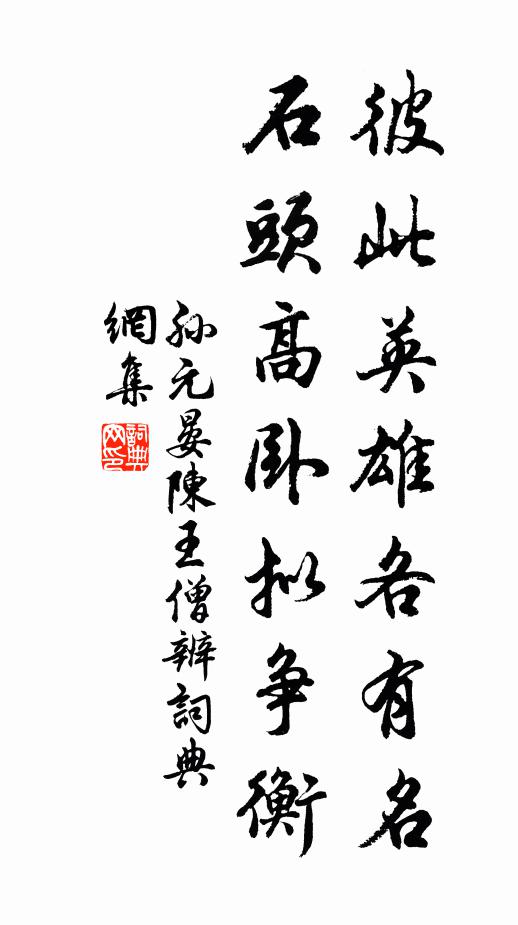 彼此英雄各有名
石頭高卧拟争衡
孙元晏陳王僧辨詞典
網集
詞典網印